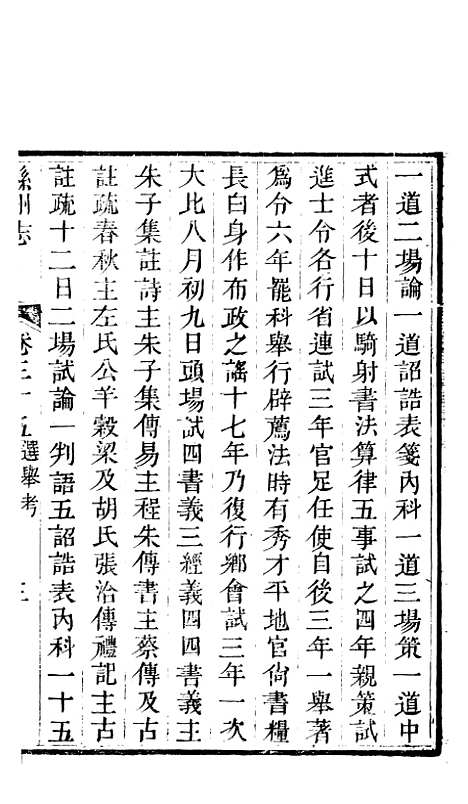 一道二場論一道詔誥表箋內科一道三場策一道中
式者後十日以騎射書法算律五事試之四年親策試
進士令各行省連試三年官足任使自後三年一舉著
為令六年罷科舉行辟薦法時有秀才平地官尙書糧
長白身作布政之謠十七年乃復行鄉會試三年一次
大比八月初九日頭場試四書義三經義四四書義主
朱子集註詩主朱子集傳易主程朱傳書主蔡傳及古
註疏春秋主左氏公羊穀梁及胡氏張洽傳禮記主古
註疏十二日二場試論一判語五詔誥表內科一十五
緜州志 卷三十五選舉考 三